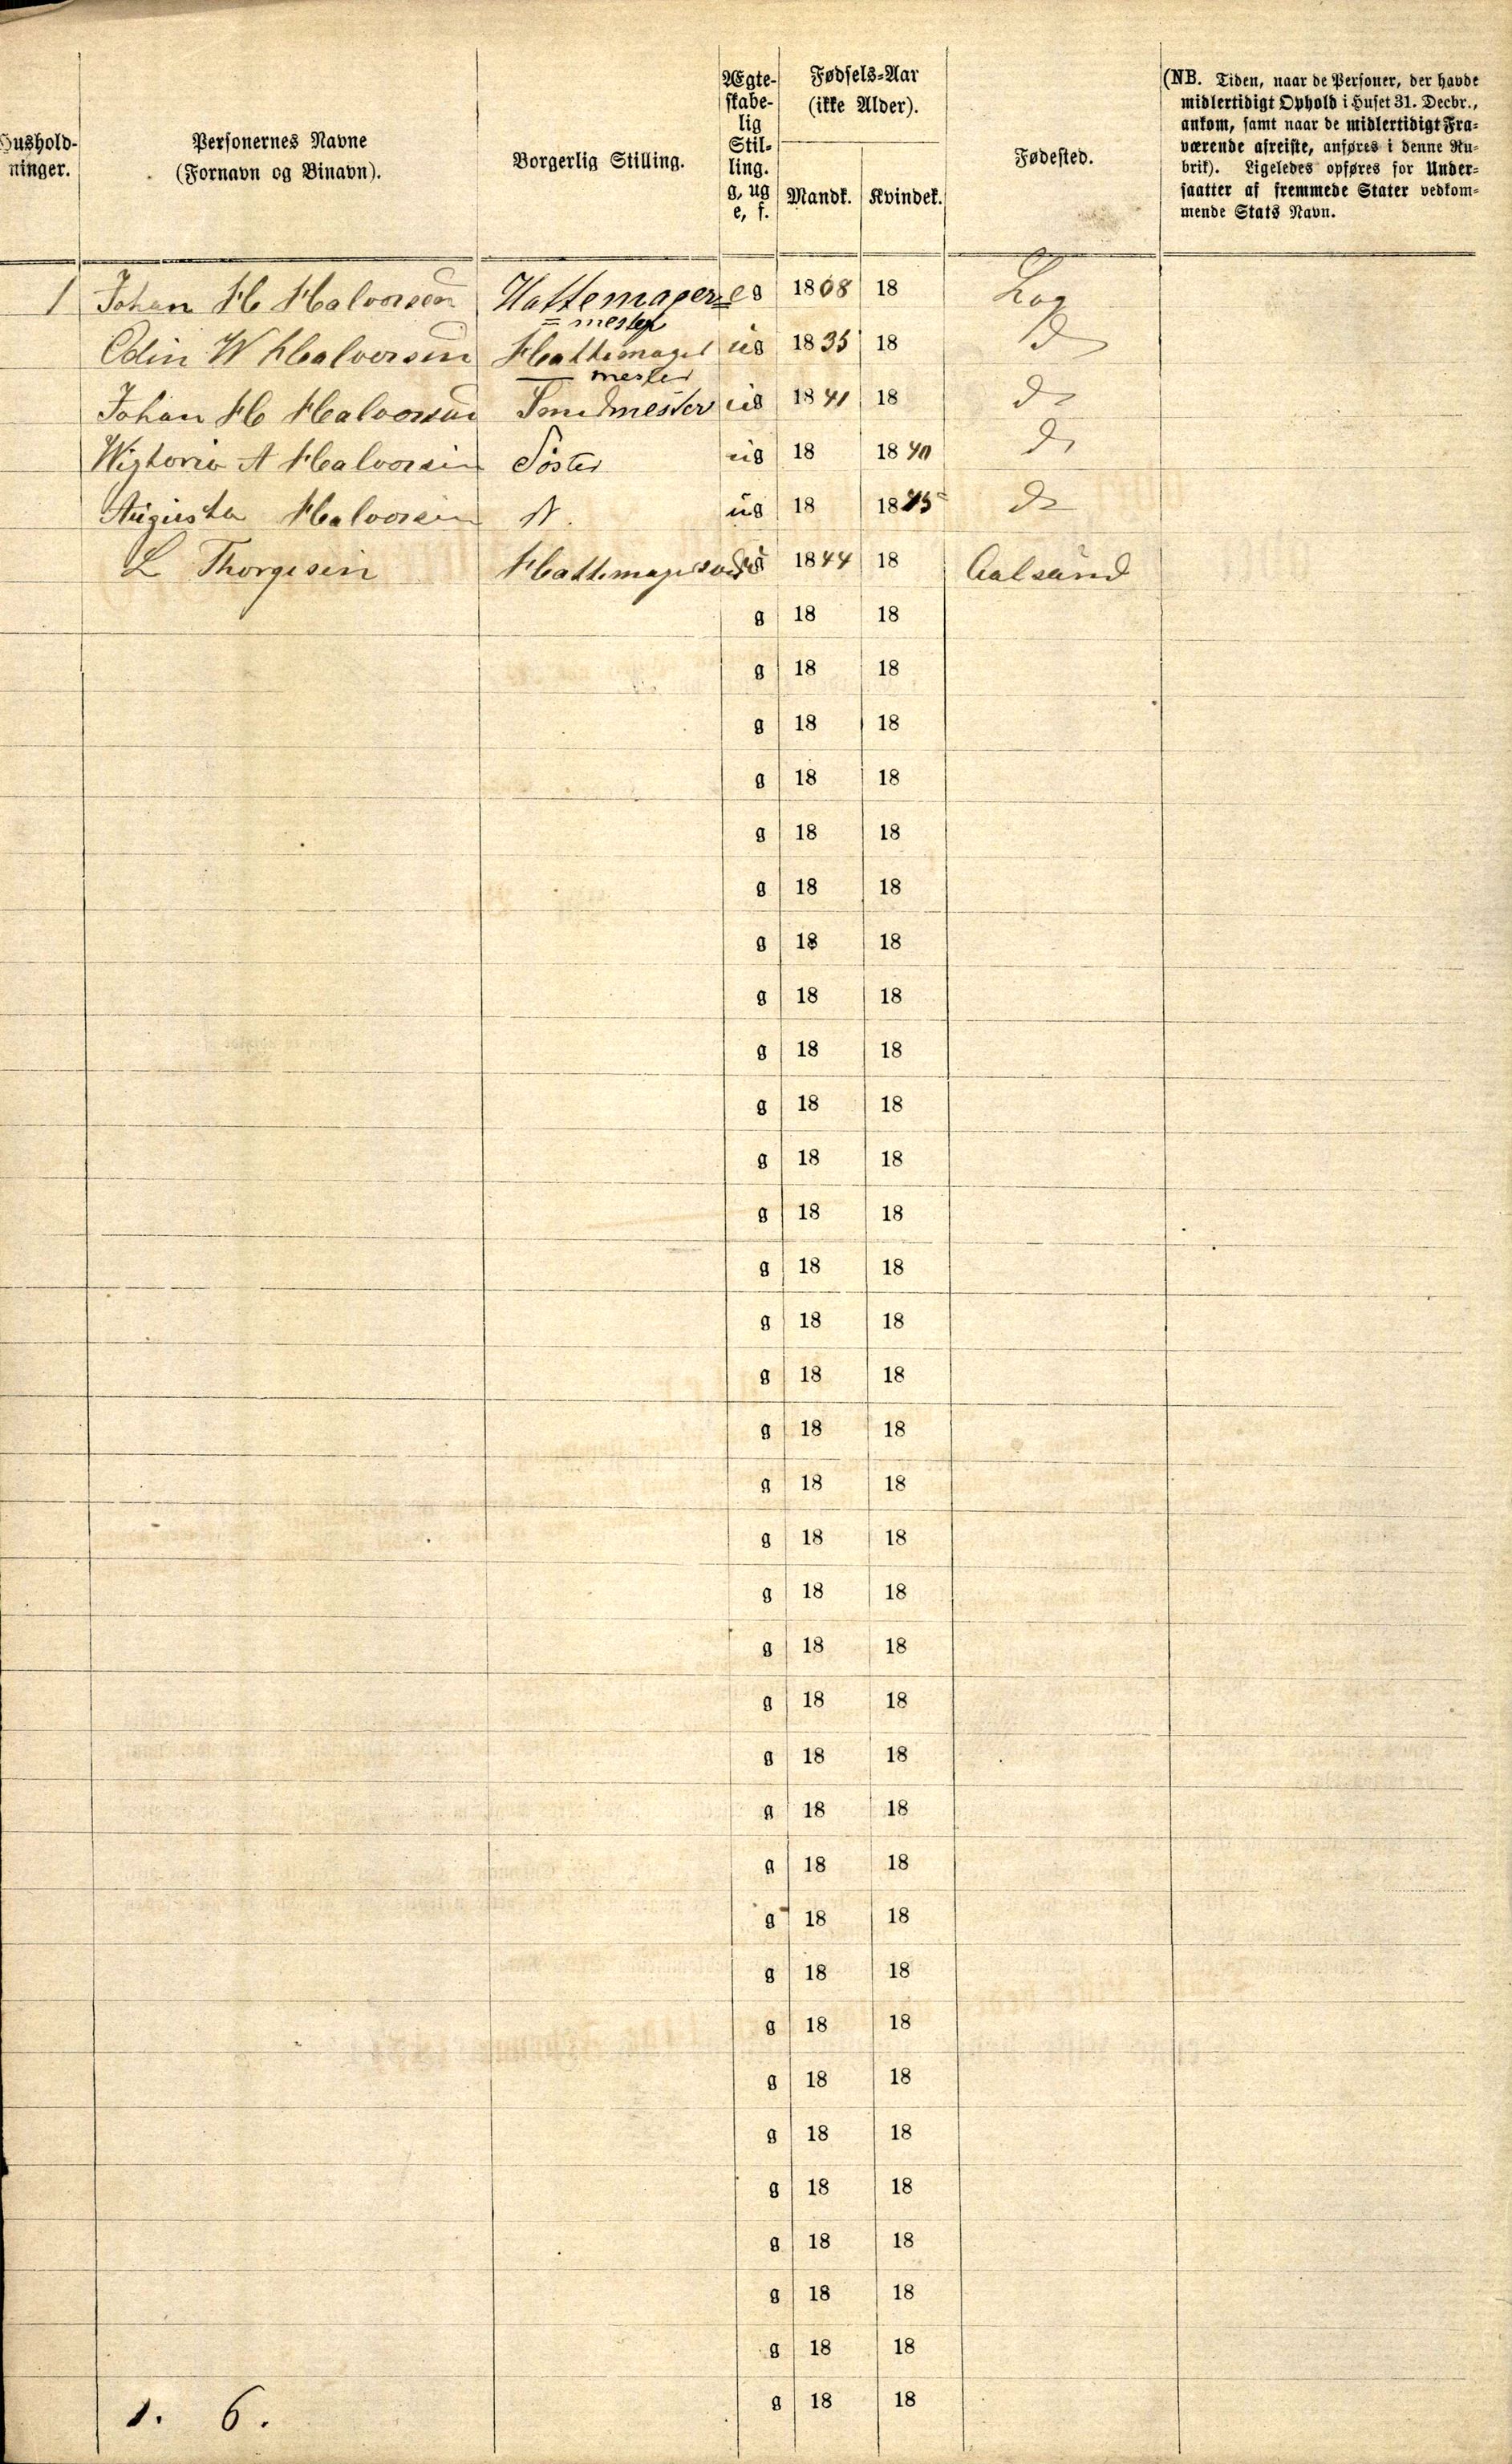 Hushold-
ninger.
Personernes Navne
(Fornavn og Binavn).
Borgerlig Stilling.
Ægte-
skabe-
lig
Stil-
ling.
g, ug
e, f.
Fødsels-Aar
(ikke Alder).
Mandk. Kvindek.
Fødested.
(NB. Tiden, naar de Personer, der havde
midlertidigt Ophold i Huset 31. Decbr.,
ankom, samt naar de midlertidigt Fra-
værende afreiste, anføres i denne Ru-
brik). Ligeledes opføres for Under-
saatter af fremmede Stater vedkom-
mende Stats Navn.
1 Johan H Halvorsen Hattemager= e g 1808 18
= mester
Odin W Halvorsen Hattemager ug 1835 18 D
mester
Johan H Halvorsen Smedmester ug 1841 18 do
Wigtoria A Halvorsen Söster ug 18 1840 do
Augusta Halvorsen ug 18 18 do
L Thorgesen ug 1844 18 Aalsund
g 18 18
g 18 18
g 18 18
g 18 18
g 18 18
g 18 18
g 18 18
g 18 18
g 18 18
g 18 18
g 18 18
g 18 18
g 18 18
g 18 18
g 18 18
g 18 18
g 18 18
g 18 18
g 18 18
g 18 18
g 18 18
g 18 18
g 18 18
g 18 18
g 18 18
g 18 18
g 18 18
g 18 18
g 18 18
g 18 18
g 18 18
g 18 18
g 18 18
g 18 18
1. 6.